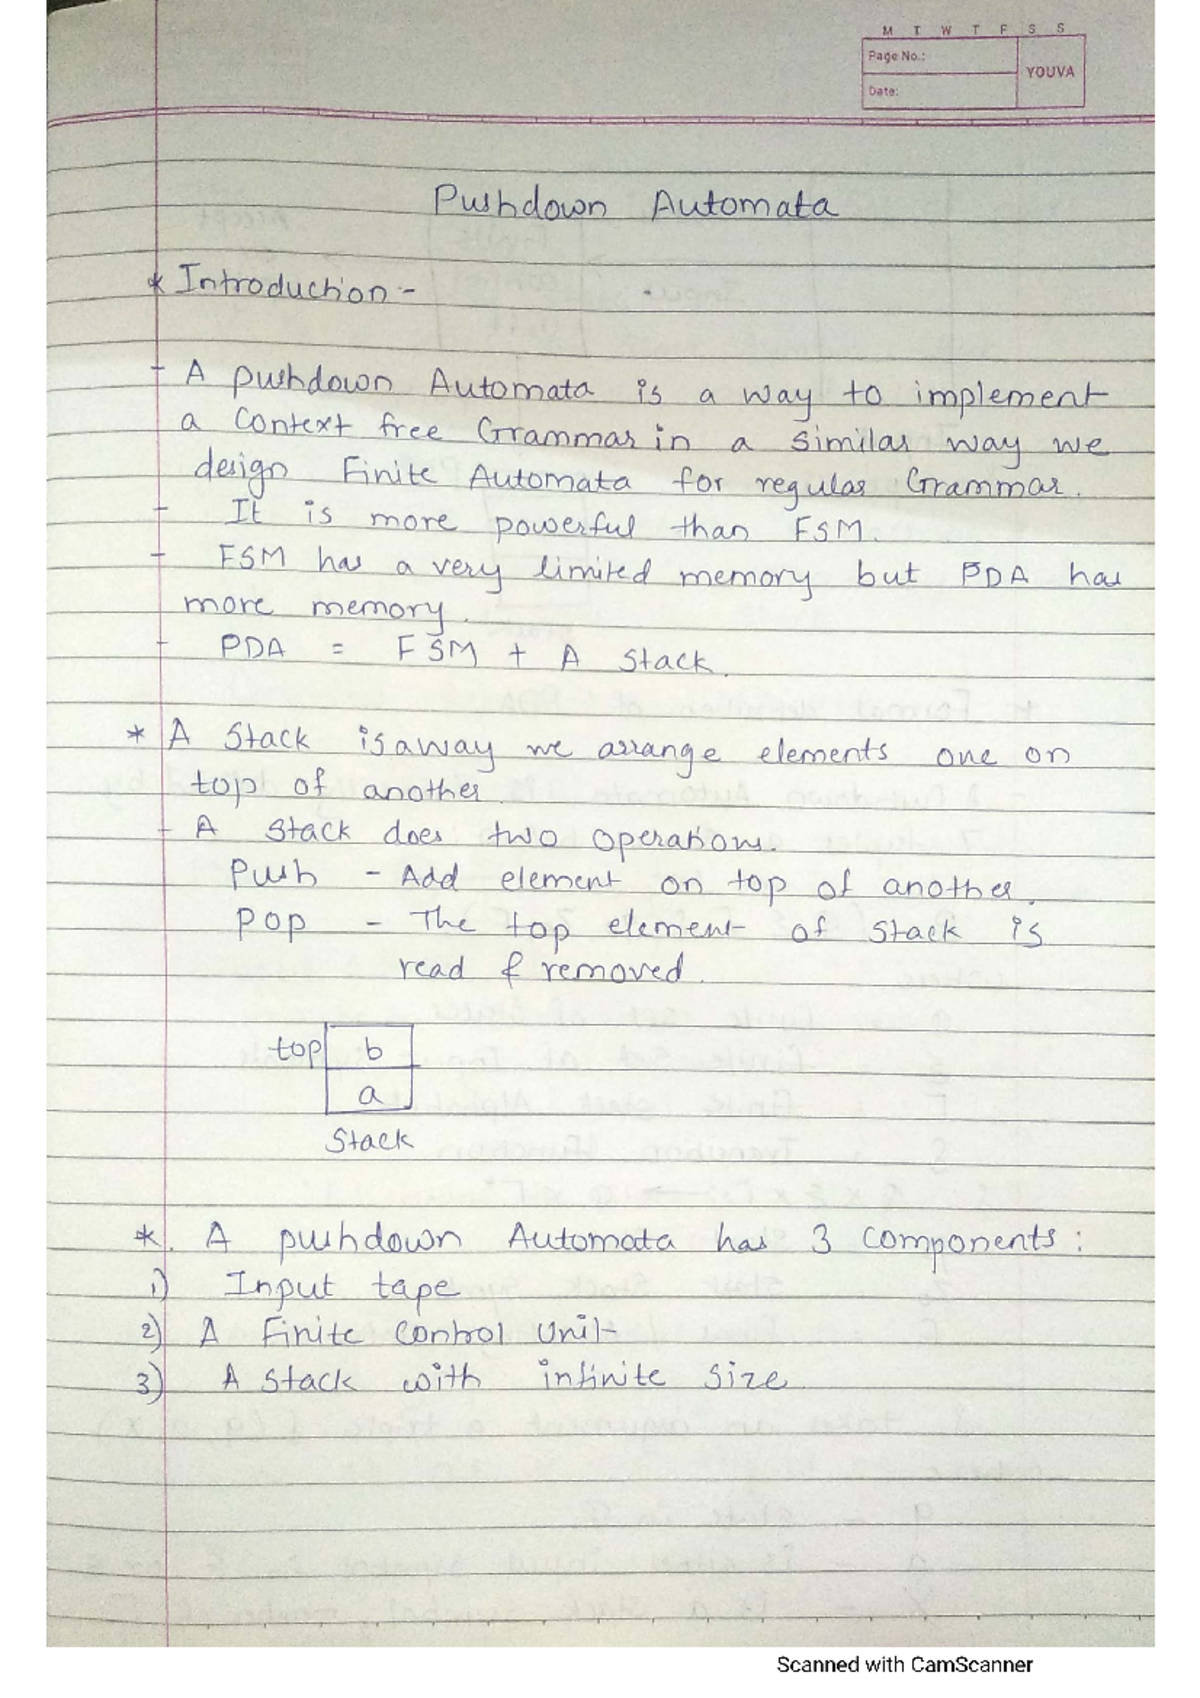 M T W T F S S
Page No.:
YOUVA
Date:
Pushdown Automata
* Introduction -
- A pushdown Automata is a way to implement
a Context free Grammar in a similar way we
design Finite Automata for regular Grammar.
- It is more powerful than FSM.
- FSM has a very limited memory but PDA has
more memory.
- PDA = FSM + A Stack.
* A Stack is a way we arrange elements one on
top of another.
- A Stack does two operations.
Push - Add element on top of another.
Pop - The top element of stack is
read & removed.
top b
a
Stack
*. A pushdown Automata has 3 components :
1) Input tape
2) A Finite Control Unit
3) A stack with infinite size
Scanned with CamScanner